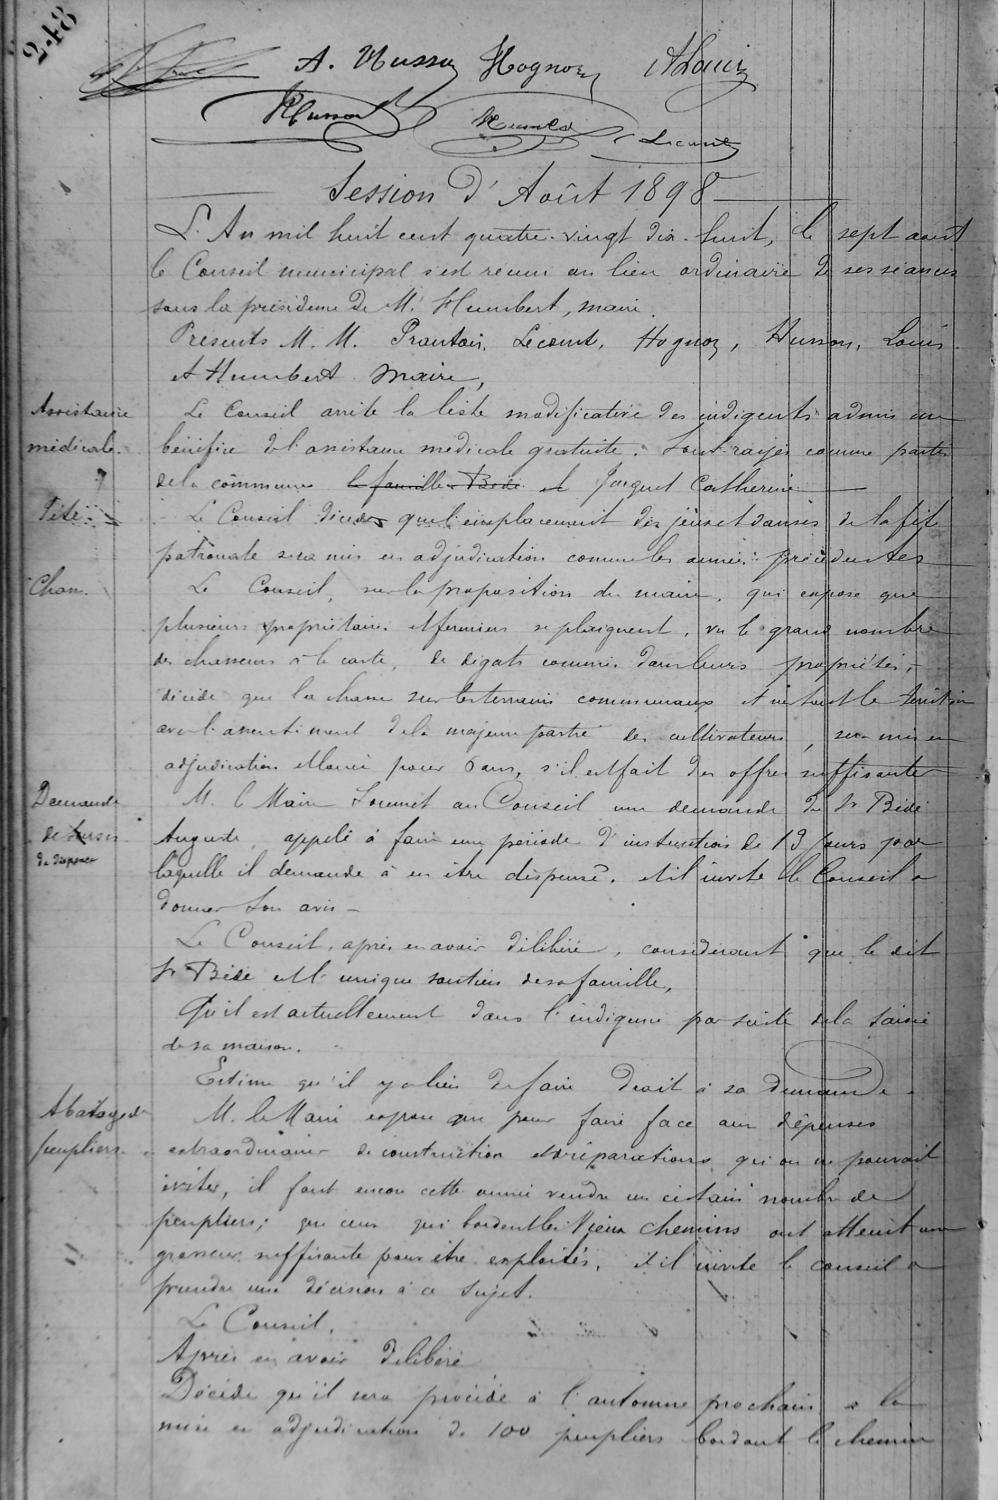 248
A. Husson Hognon A Louis
Husson Humbert Lecomte
Session d'Août 1898
L'An mil huit cent quatre-vingt dix-huit, le sept août
le Conseil municipal s'est réuni au lieu ordinaire de ses séances
sous la présidence de Mr Humbert, maire.
Présents M. M. Prautois, Lecomte, Hognon, Husson, Louis
et Humbert Maire,
Assistance
médicale.
Le Conseil arrête la liste modificative des indigents admis au
bénéfice de l'assistance médicale gratuite. Sont rayés comme partis
de la commune la famille Bédé et Jacquet Catherine
Fête
Le Conseil décide que l'emplacement des jeux et danses de la fête
patronale sera mis en adjudication comme les années précédentes
Chasse
Le Conseil, sur la proposition du maire, qui expose que
plusieurs propriétaires et fermiers se plaignent, vu le grand nombre
de chasseurs à la carte, de dégats commis dans leurs propriétés,
décide que la chasse sur les terrains communaux et sur tout le territoire
avec l'assentiment de la majeure partie des cultivateurs, sera mise en
adjudication et louée pour 6 ans, s'il est fait des offres suffisantes
Demande
de
de dispense
M. le Maire soumet au Conseil une demande du Sr Bédé
Auguste, appelé à faire une période d'instruction de 13 jours pour
laquelle il demande à en être dispensé, et il invite le Conseil à
donner son avis –
Le Conseil, après en avoir délibéré, considérant que le dit
Sr Bédé est l'unique soutien de sa famille,
Qu'il est actuellement dans l'indigence par suite de la saisie
de sa maison.
Estime qu'il y a lieu de faire droit à sa demande.
Abatage de
peupliers.
M. le Maire expose que pour faire face aux dépenses
extraordinaires de construction et réparations qu'on ne pouvait
éviter, il faut encore cette année vendre un certain nombre de
peupliers; que ceux qui bordent les Vieux chemins ont atteint une
grosseur suffisante pour être exploités, et il invite le conseil à
prendre une décision à ce sujet.
Le Conseil,
Après en avoir délibéré
Décide qu'il sera procédé à l'automne prochain à la
mise en adjudication de 100 peupliers bordant le chemin